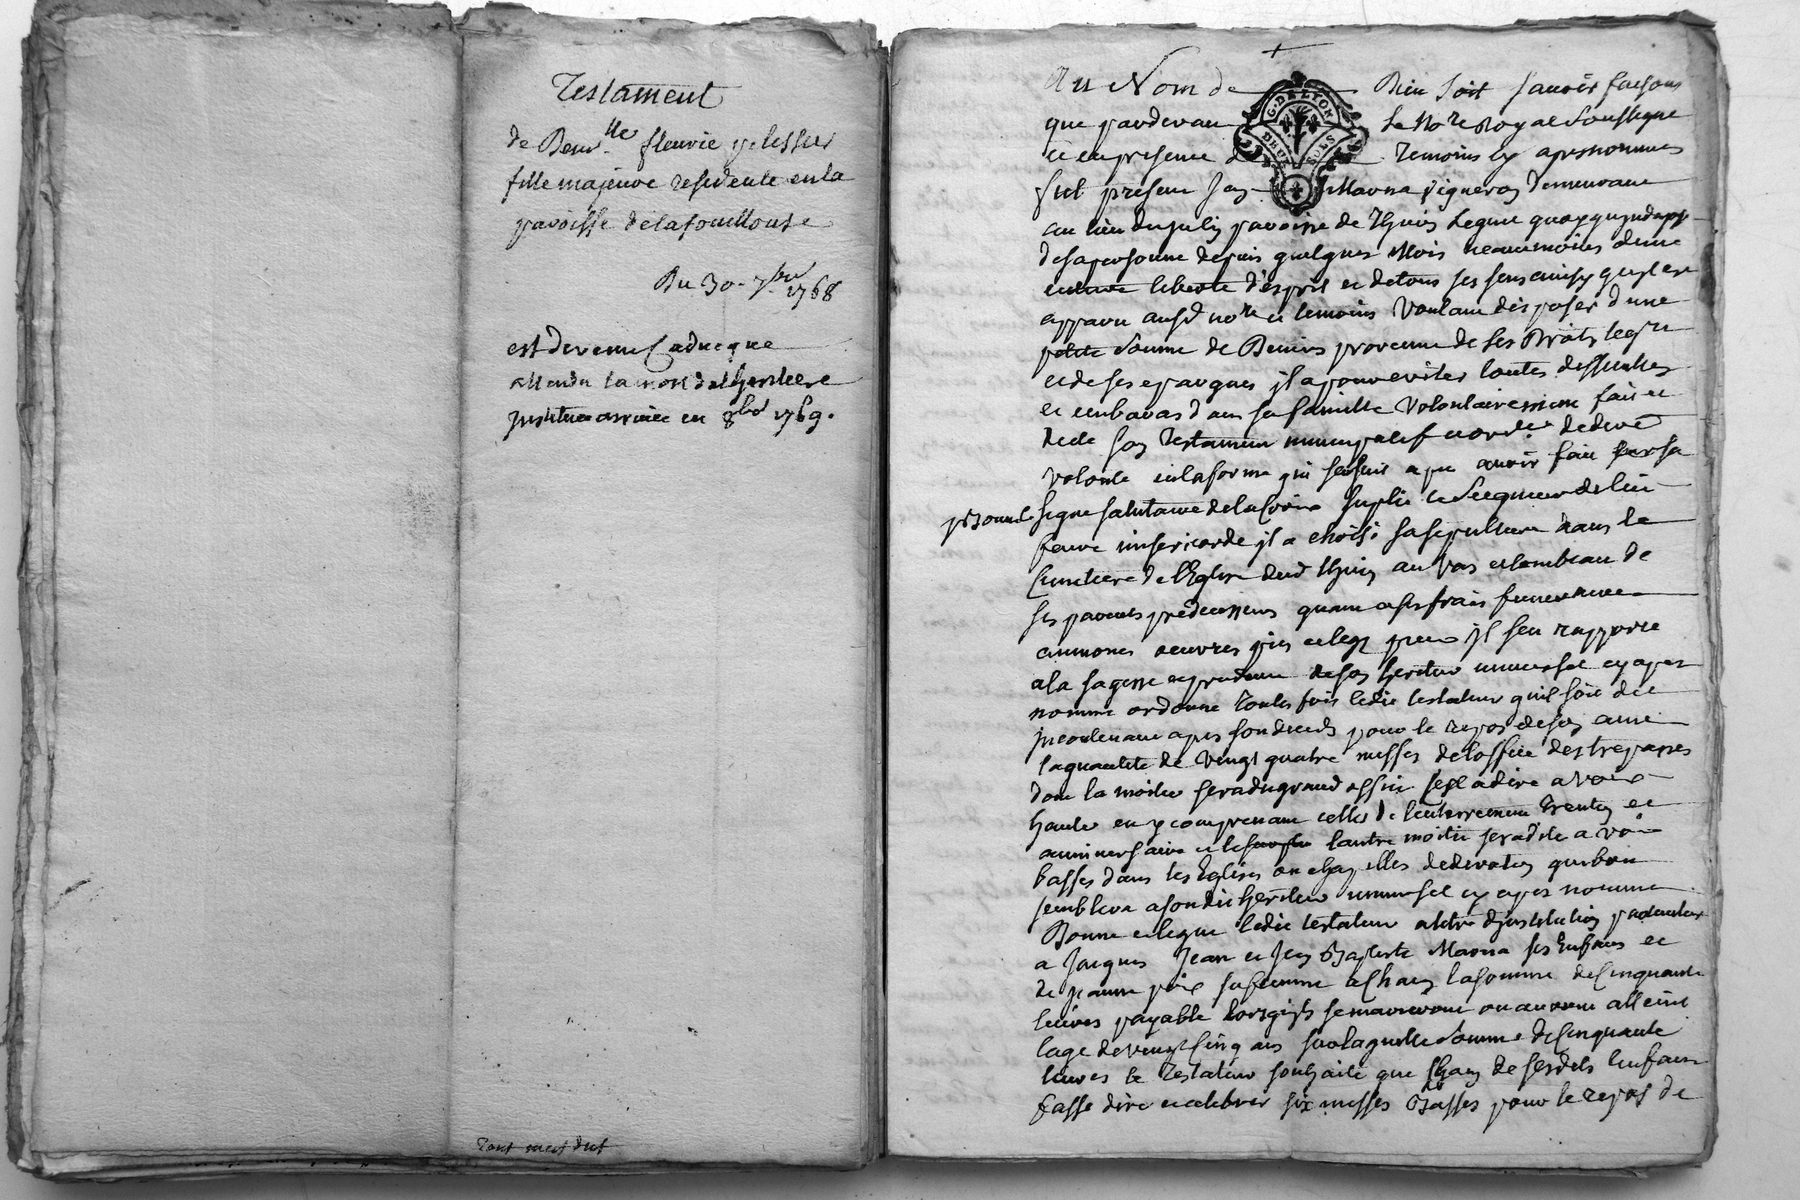 Testament
de Dem.lle fleurie pelissier
fille majeure residente en la
paroisse de la fouillouse
Du 30 7bre 1768
est devenu Caducque
attendu la mort de lheritiere
Instituée arrivée en 8bre 1769.
Tout
+
Au Nom de Dieu soit sauoir faisons
que pardeuant Le No.re Royal Soussigne
et en presence de temoins cy apres nommes
G. DE LYON
DEUX SOLS
fut present Jean Marna vigneron demeurant
au lieu du paroisse de Lequel quoyquindispose
de sa personne depuis quelques Mois neantmoins dune
entiere liberte d'esprit et de tous ses sens ainsy quil est
apparu aud no.re et temoins Voulant disposer d'une
petite Somme de Deniers provenue de ses Droits legit.
et de ses epargnes jl a pour eviter toutes difficultes
et embaras dans sa famille Volontairement fait et
dicte son Testament nuncupatif et ord.re de dere
volonte en la forme qui sensuit apres auoir fait sur sa
personne le signe salutaire de la Croix suplie le Seigneur de luy
faire misericorde jl a choisi sa sepulture dans le
Cimetiere de l'Eglise dud au vas et tombeau de
ses parents predecesseurs quant a ses frais funeraires
aumones oeuvres pies et legs pieux jl sen rapporte
a la sagesse et prudence de son heritier universel cy apres
nomme ordonne toutes fois ledit testateur quil soit dit
jncontinant apres son deceds pour le repos de son ame
la quantite de vingt quatre messes de loffice des trepasses
dont la moitie sera du grand office cest a dire a voix
haute en y comprenant celles de lenterrement trentin et
anniversaire et lautre moitie sera dite a voix
basses dans les Eglises ou chapelles de devotion que bon
semblera a sondit heritier universel cy apres nomme
Donne et legue ledit testateur a titre d'institution particuliere
a Jacques Jean et Jean Baptiste Marna ses Enfans et
de sa femme a Chacun la somme de Cinquante
livres payable lorsqils se marieront ou auront atteint
lage de vingt Cinq ans sur laquelle Somme de Cinquante
livres le Testateur souhaite que Chacun de sesdits Enfans
fasse dire et celebrer six messes Basses pour le repos de